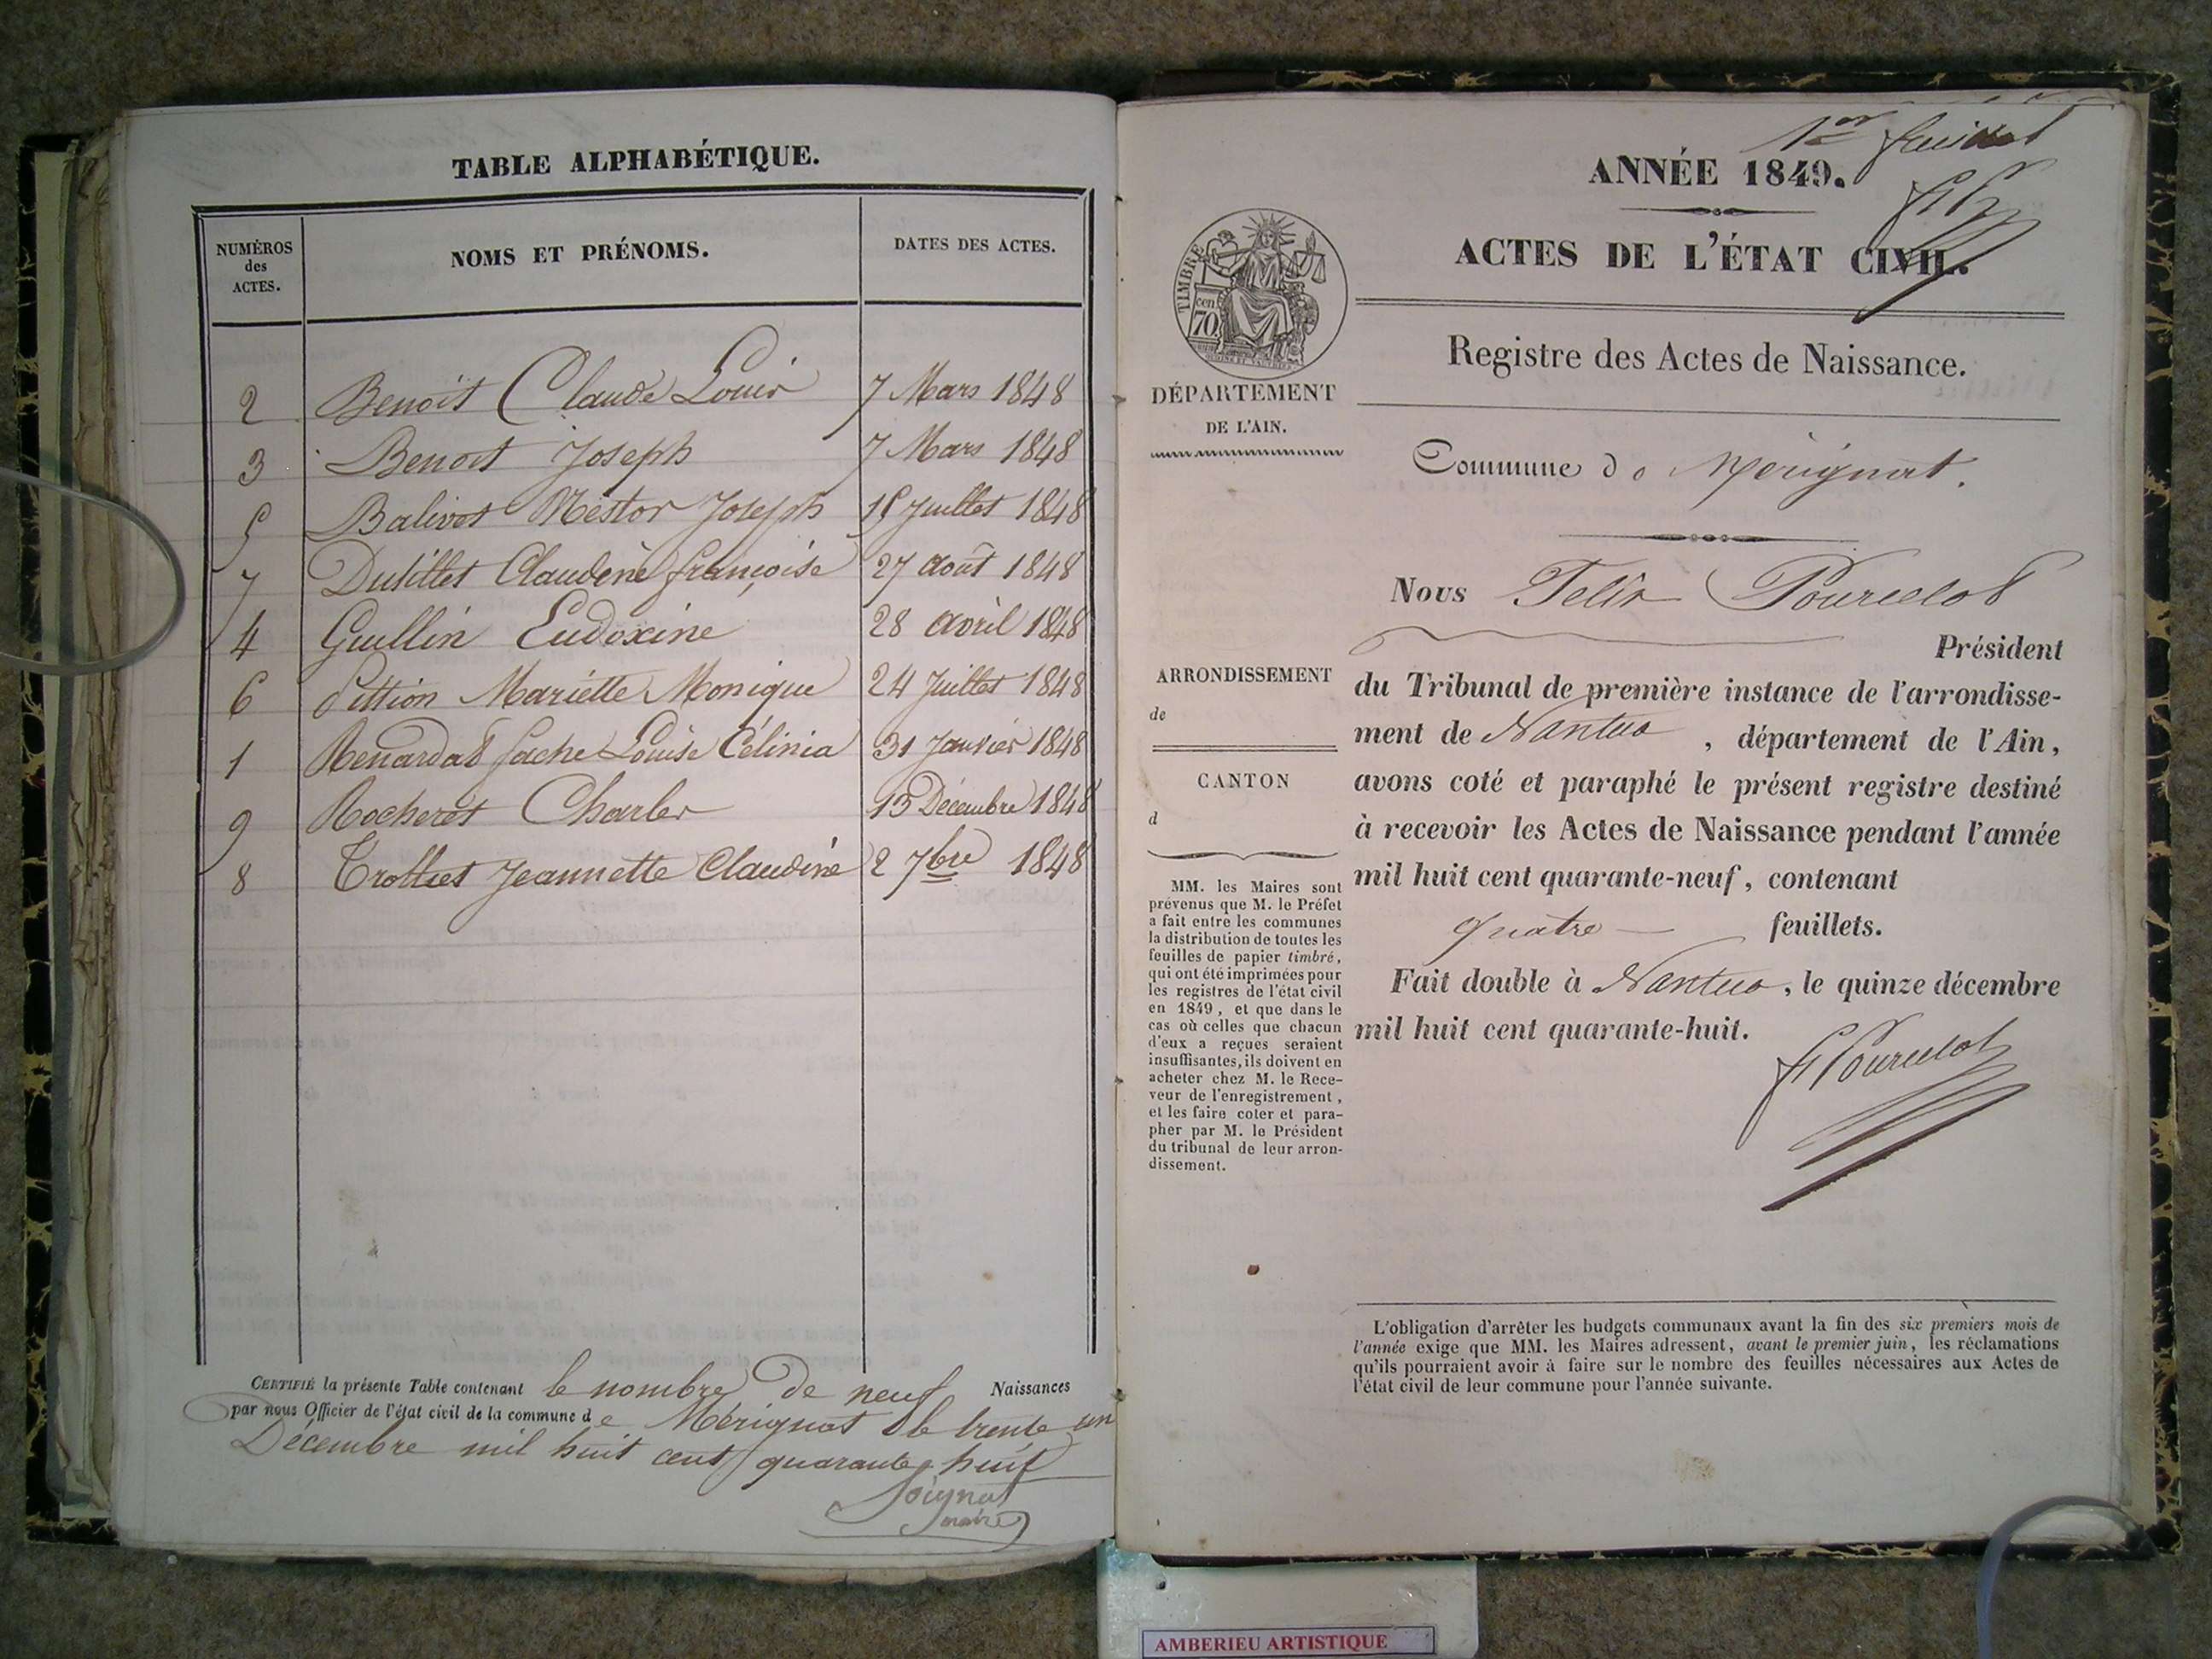 TABLE ALPHABÉTIQUE.
NUMÉROS
des
ACTES.
NOMS ET PRÉNOMS.
DATES DES ACTES.
2 Benoît Claude Louis 7 Mars 1848
3 Benoit Joseph 7 Mars 1848
5 Balivet Nestor Joseph 15 Juillet 1848
7 Dutillet Claudène françoise 27 août 1848
4 Guillin Eudoxine 28 avril 1848
6 Pittion Mariette Monique 24 Juillet 1848
1 Renardat fache Louise Célinia 31 Janvier 1848
9 Rocheret Charles 13 Décembre 1848
8 Trolliet Jeannette Claudine 2 7bre 1848
CERTIFIÉ la présente Table contenant le nombre de neuf Naissances
par nous Officier de l'état civil de la commune de Mérignat le trente un
Décembre mil huit cent quarante huit
maire
1er feuillet
ANNÉE 1849.
ACTES DE L'ÉTAT CIVIL.
TIMBRE
cen
70
Registre des Actes de Naissance.
DÉPARTEMENT
DE L'AIN.
Commune de Mérignat.
Nous Felix Pourcelot
Président
du Tribunal de première instance de l'arrondisse-
ment de Nantua, département de l'Ain,
avons coté et paraphé le présent registre destiné
à recevoir les Actes de Naissance pendant l'année
mil huit cent quarante-neuf, contenant
quatre feuillets.
Fait double à Nantua, le quinze décembre
mil huit cent quarante-huit.
f Pourcelot
ARRONDISSEMENT
de
CANTON
d
MM. les Maires sont
prévenus que M. le Préfet
a fait entre les communes
la distribution de toutes les
feuilles de papier timbré,
qui ont été imprimées pour
les registres de l'état civil
en 1849, et que dans le
cas où celles que chacun
d'eux a reçues seraient
insuffisantes, ils doivent en
acheter chez M. le Rece-
veur de l'enregistrement,
et les faire coter et para-
pher par M. le Président
du tribunal de leur arron-
dissement.
L'obligation d'arrêter les budgets communaux avant la fin des six premiers mois de
l'année exige que MM. les Maires adressent, avant le premier juin, les réclamations
qu'ils pourraient avoir à faire sur le nombre des feuilles nécessaires aux Actes de
l'état civil de leur commune pour l'année suivante.
AMBERIEU ARTISTIQUE